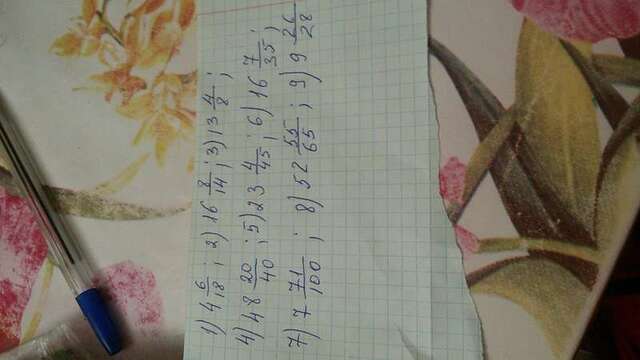 1) 4 6/18 ; 2) 16 8/14 ; 3) 13 4/8 ;
4) 48 20/40 ; 5) 23 4/45 ; 6) 16 7/35 ;
7) 7 71/100 ; 8) 52 55/65 ; 9) 9 26/28